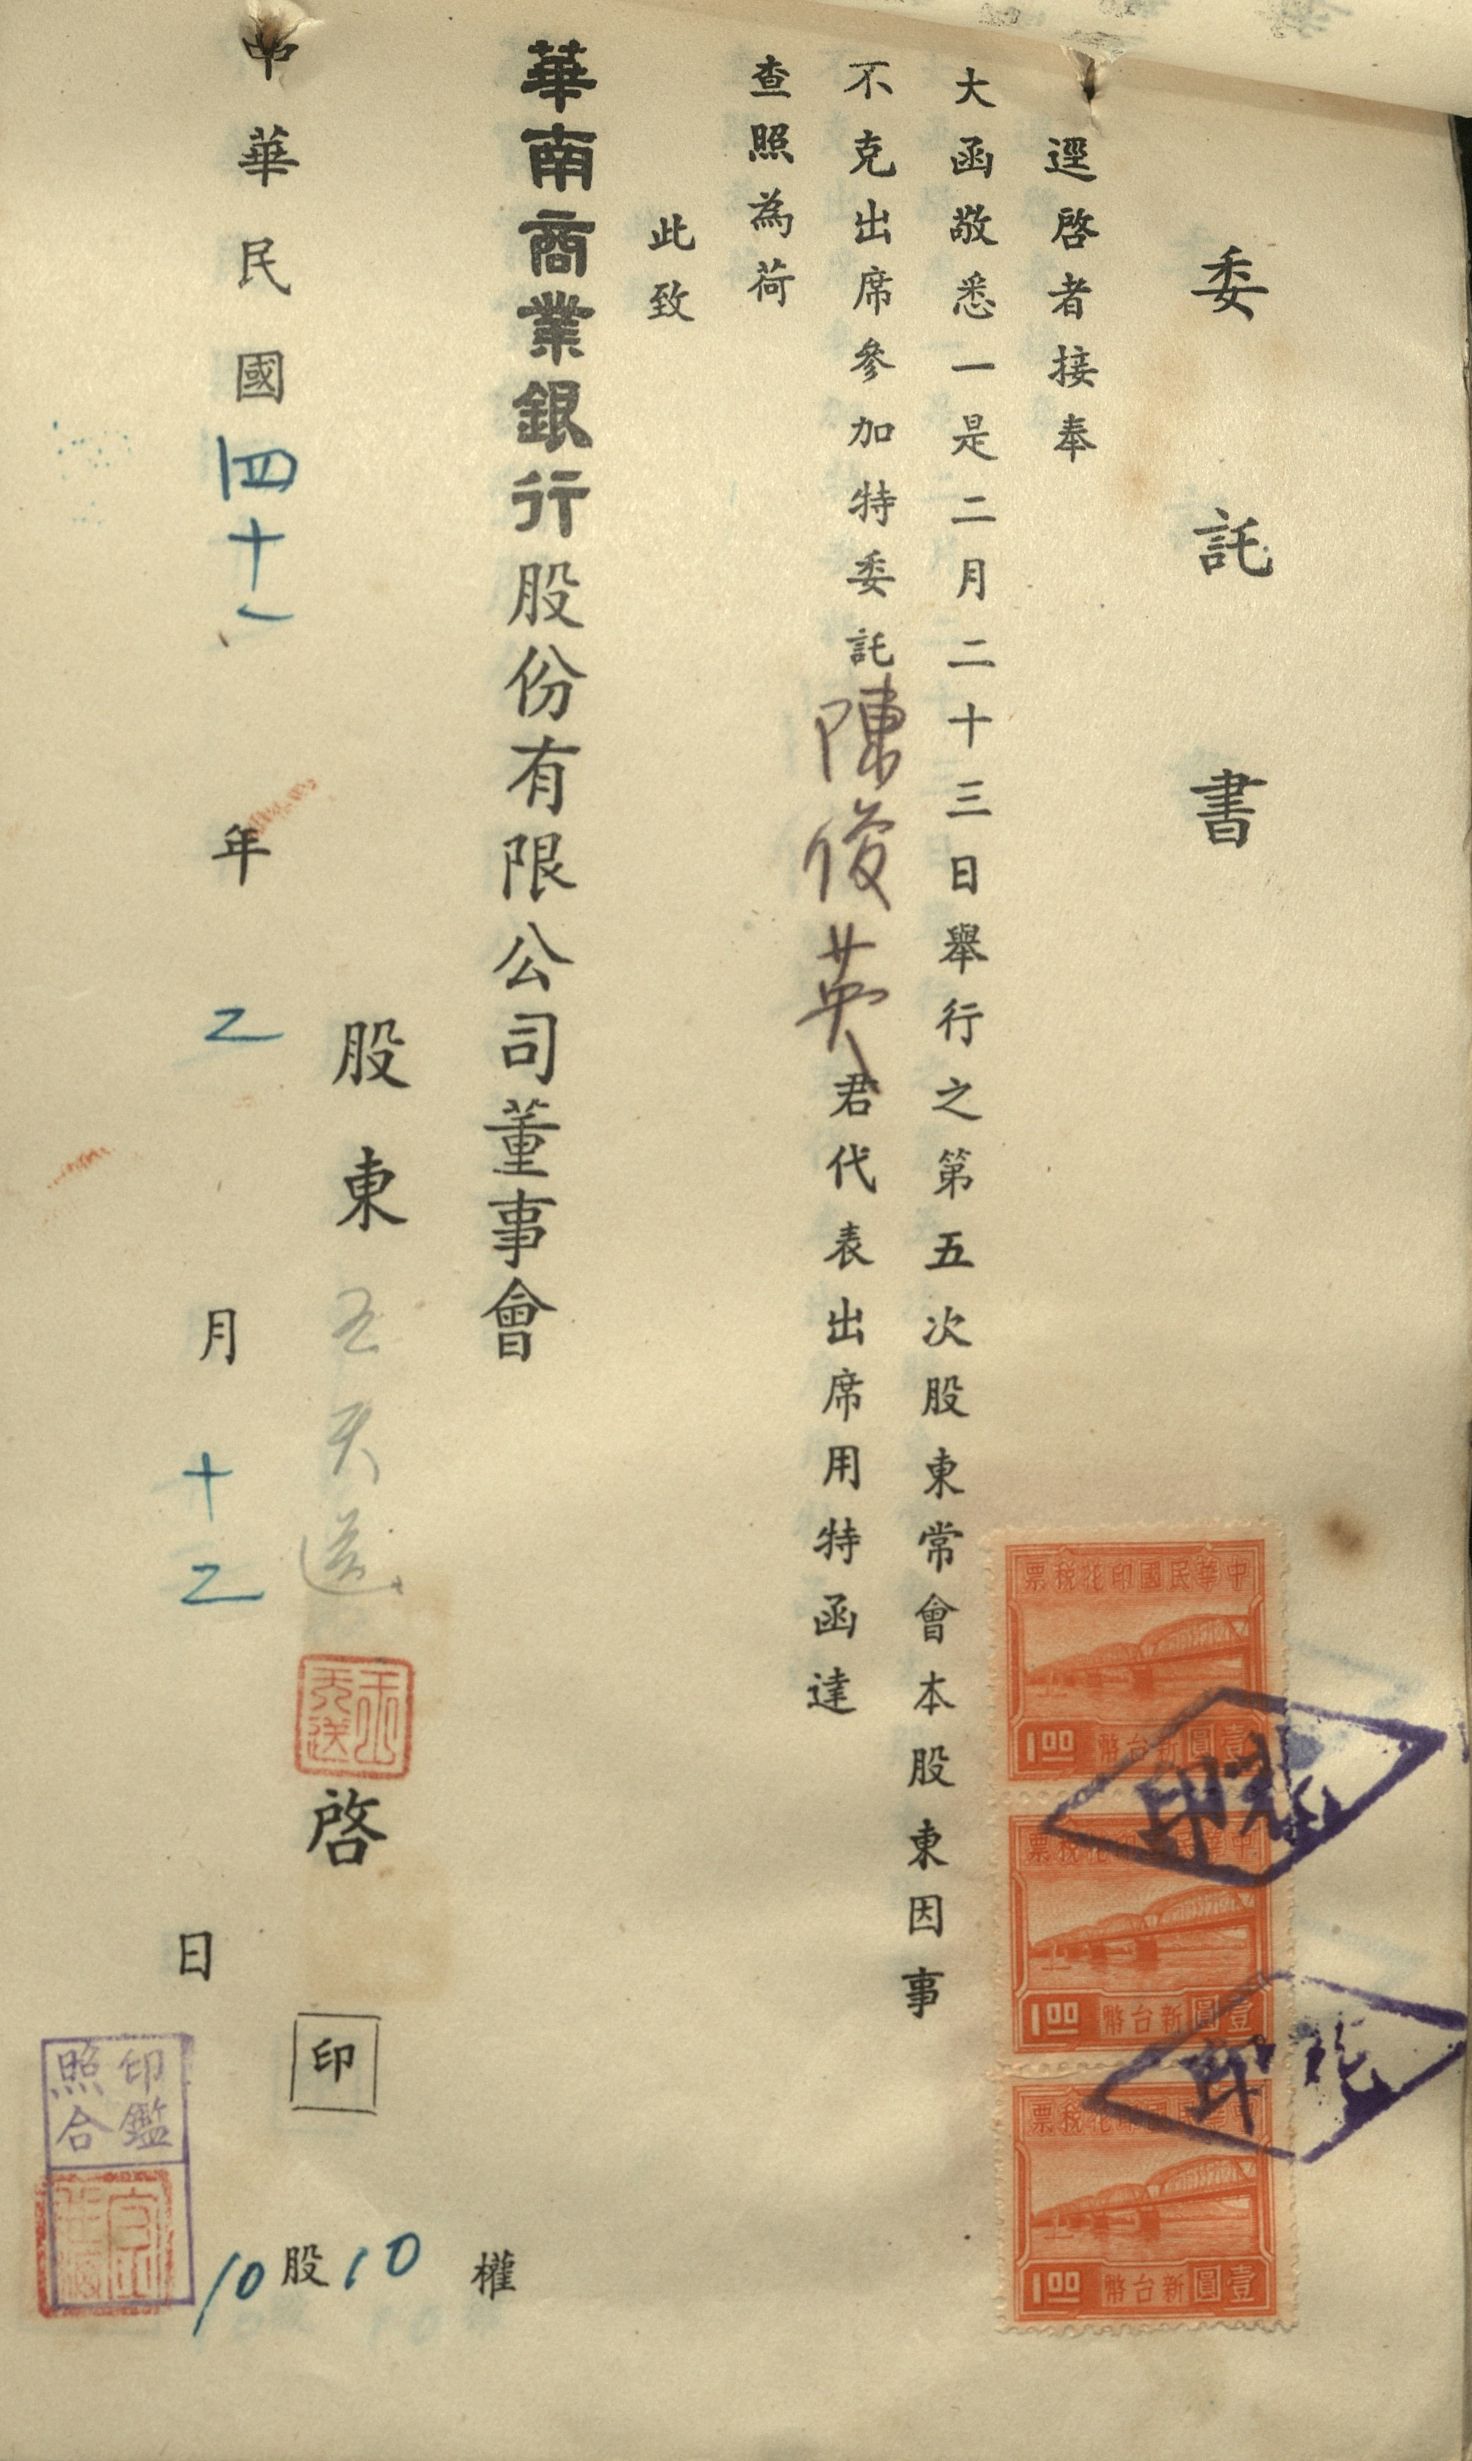 委託書
逕啓者接奉
大函敬悉一是二月二十三日舉行之第五次股東常會本股東因事
不克出席參加特委託陳俊英君代表出席用特函達
查照為荷
此致
華南商業銀行股份有限公司董事會
股東王天送啓印
中華民國四十一年二月十二日
10股10權
印鑑照合
中華民國印花稅票
壹圓新台幣1.00
中華民國印花稅票
壹圓新台幣1.00
中華民國印花稅票
壹圓新台幣1.00